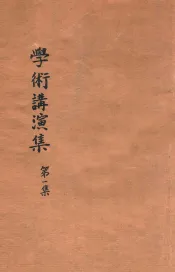 學術講演集
第一集